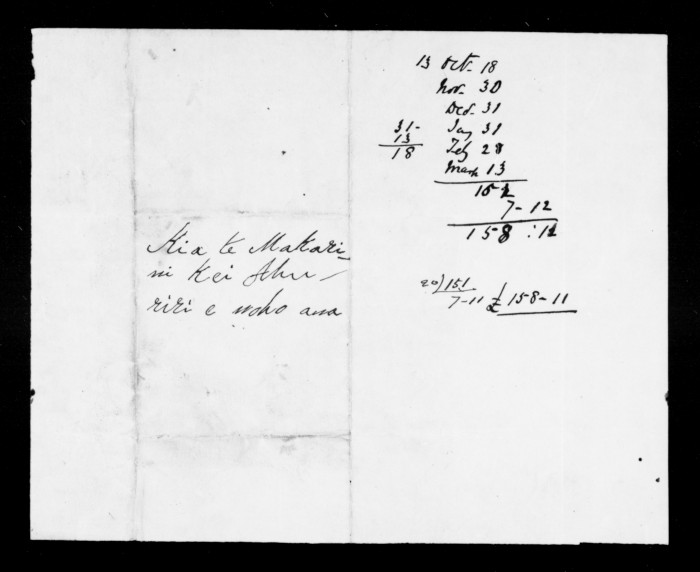 Kia te Makari-
ni Kei Ahu-
riri e noho ana
13 Oct. 18
Nov. 30
Decr. 31
Jany 31
Feby 28
March 13
31-
13
18
152
7-12
158:12
20)151
7-11
£158-11